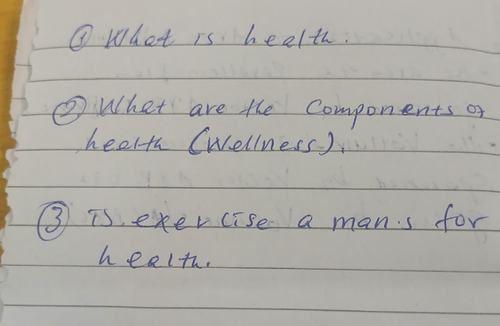 ① What is health.
② What are the components of
health (Wellness).
③ is exercise a man.s for
health.